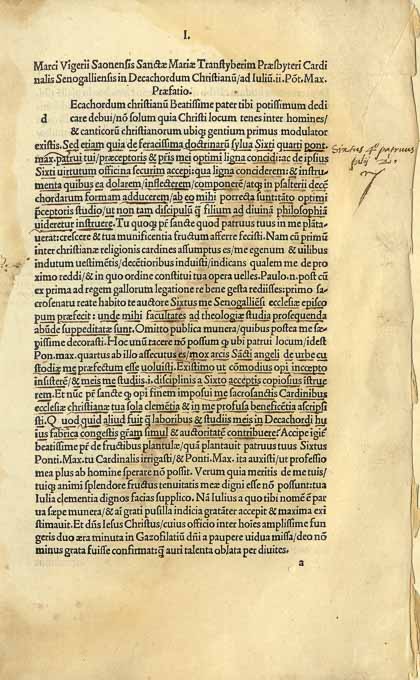 I.
Marci Vigerii Saonensis Sanctæ Mariæ Transtyberim Præsbyteri Cardi
nalis Senogalliensis in Decachordum Christianū/ad Iuliū.ii.Pōt.Max.
Præfatio.
d
Ecachordum christianū Beatissime pater tibi potissimum dedi
care debui/nō solum quia Christi locum tenes inter homines/
& canticorū christianorum ubiq; gentium primus modulator
existis. Sed etiam quia de feracissima doctrinarū sylua Sixti quarti pont
max. patrui tui/præceptoris & pr̄is mei optimi ligna concidi: ac de ipsius
Sixti uirtutum officina securim accepi: qua ligna conciderem: & instru
menta quibus ea dolarem/inflecterem/componerē/atq; in psalterii decā
chordarum formam adducerem/ab eo mihi porrecta sunt: tāto optimi
p̄ceptoris studio/ut non tam discipulū q̄ filium ad diuinā philosophiā
uideretur instruere. Tu quoq; pr̄ sancte quod patruus tuus in me plāta
uerat: crescere & tua munificentia fructum afferre fecisti. Nam cū primū
inter christianæ religionis cardines assumptus es/me egenum & uilibus
indutum uestimētis/decētioribus induisti/indicans qualem me de pro
ximo reddi/& in quo ordine constitui tua opera uelles. Paulo.n.post cū
ex prima ad regem gallorum legatione re bene gesta rediisses: primo sa
crosenatu reate habito te auctore Sixtus me Senogalliēsi ecclesiæ episco
pum præfecit: unde mihi facultates ad theologiæ studia prosequenda
abūde suppeditatæ sunt. Omitto publica munera/quibus postea me sæ
pissime decorasti. Hoc unū tacere nō possum q̄ ubi patrui locum/idest
Pon.max.quartus ab illo assecutus es/mox arcis Sācti angeli de urbe cu
stodiæ me præfectum esse uoluisti. Existimo ut cōmodius opi incepto
insisterē/& meis me studiis.i.disciplinis a Sixto acceptis copiosius īstrue
rem. Et nūc pr̄ sancte q̄ opi finem imposui me sacrosanctis Cardinibus
ecclesiæ christianæ tua sola clemētia & in me profusa beneficētia ascripsi
sti. Q uod quid aliud fuit q̄ laboribus & studiis meis in Decachordi hu
ius fabrica congestis grām simul & auctoritatē contribuere? Accipe igiē
beatissime pr̄ de fructibus plantulæ/quā plantauit patruus tuus Sixtus
Ponti.Max.tu Cardinalis irrigasti/& Ponti.Max.ita auxisti/ut professio
mea plus ab homine sperare nō possit. Verum quia meritis de me tuis/
tuiq; animi splendore fructus tenuitatis meæ digni esse nō possunt: tua
Iulia clementia dignos facias supplico. Nā Iulius a quo tibi nomē ē par
ua sæpe munera/& ai grati pusilla indicia gratāter accepit & maxima exi
stimauit. Et dn̄s Iesus Christus/cuius officio inter hoīes amplissime fun
geris duo æra minuta in Gazofilatiū dn̄i a paupere uidua missa/deo nō
minus grata fuisse confirmat: q̄ auri talenta oblata per diuites.
a
Sixtus
patruus